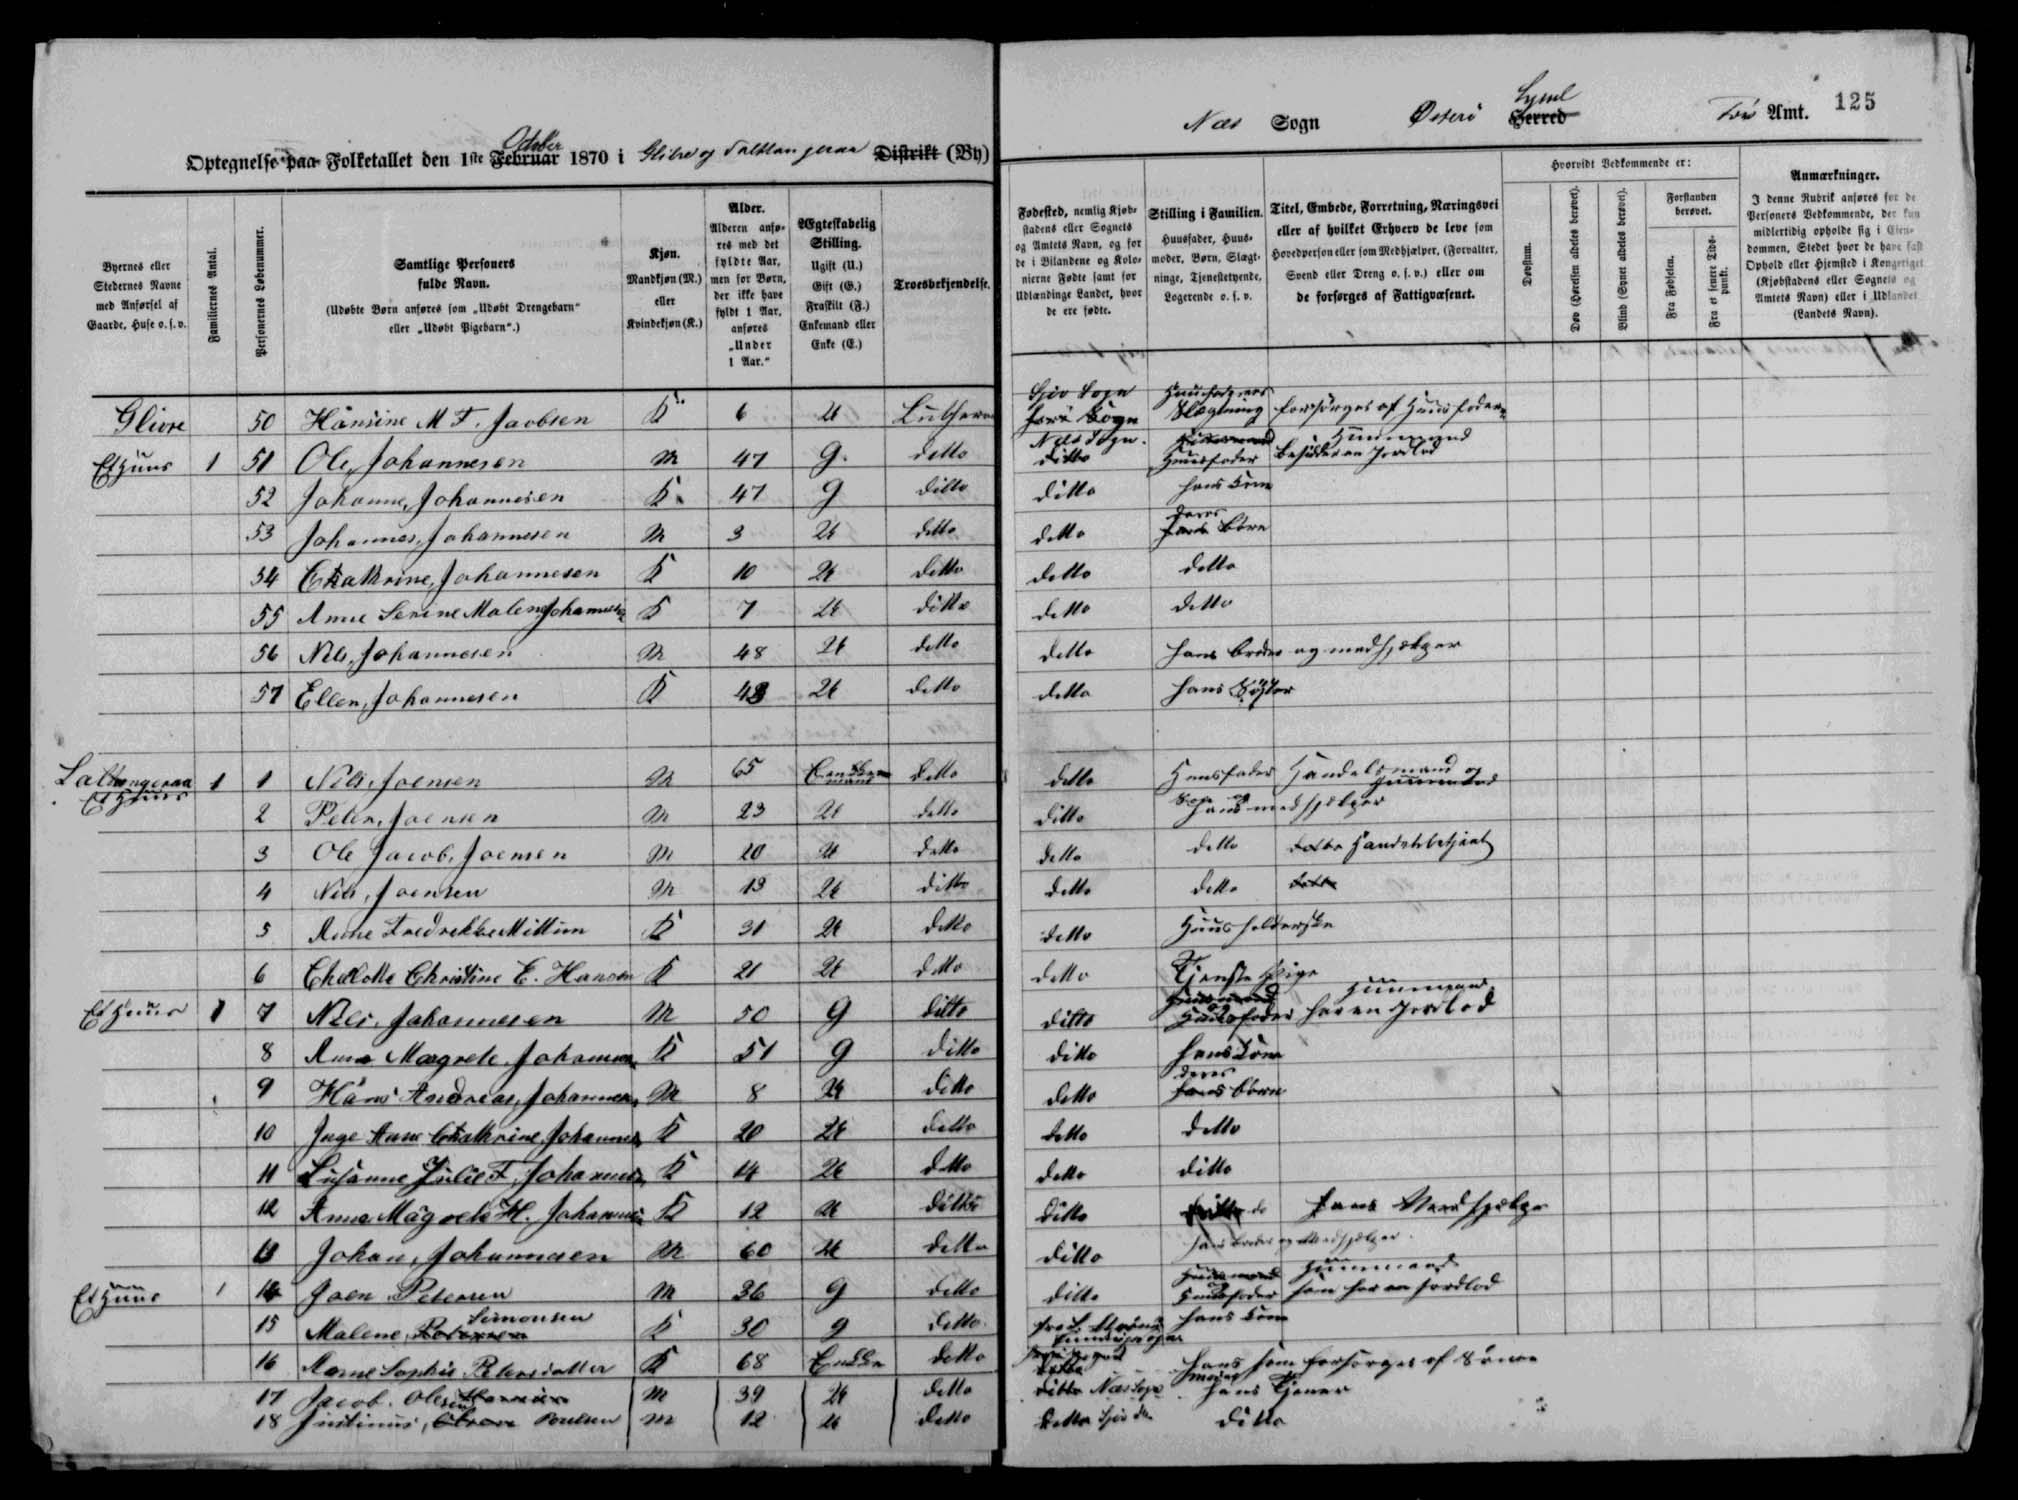 Optegnelse paa Folketallet den 1ste Februar October 1870 i Glibre og Saltangeraa Distrikt (By)
Næs Sogn Østerø Herred Syssel Færø Amt. 125
Byernes eller Stedernes Navne med Anførsel af Gaarde, Huse o. s. v.
Familiernes Antal.
Personernes Løbenummer.
Samtlige Personers fulde Navn.
(Udøbte Børn anføres som „Udøbt Drengebarn“ eller „Udøbt Pigebarn“.)
Kjøn.
Mandkjøn (M.) eller Kvindekjøn (K.)
Alder.
Alderen anføres med det fyldte Aar, men for Børn, der ikke have fyldt 1 Aar, anføres „Under 1 Aar.“
Ægteskabelig Stilling.
Ugift (U.)
Gift (G.)
Fraskilt (F.)
Enkemand eller Enke (E.)
Troesbekjendelse.
Fødested, nemlig Kjøbstadens eller Sognets og Amtets Navn, og for de i Bilandene og Kolonierne Fødte samt for Udlændinge Landet, hvor de ere fødte.
Stilling i Familien.
Huusfader, Huusmoder, Børn, Slægtninge, Tjenestetyende, Logerende o. s. v.
Titel, Embede, Forretning, Næringsvei eller af hvilket Erhverv de leve som Hovedperson eller som Medhjælper, (Forvalter, Svend eller Dreng o. s. v.) eller om de forsørges af Fattigvæsenet.
Hvorvidt Vedkommende er:
Døvstum.
Døv (Hørelsen aldeles berøvet).
Blind (Synet aldeles berøvet).
Forstanden berøvet.
Fra Fødselen.
Fra et senere Tidspunkt.
Anmærkninger.
I denne Rubrik anføres for de Personers Vedkommende, der kun midlertidig opholde sig i Eiendommen, Stedet hvor de have fast Ophold eller Hjemsted i Kongeriget (Kjøbstadens eller Sognets og Amtets Navn) eller i Udlandet (Landets Navn).
Glivre 50 Hansine M F. Jacobsen K 6 U Luthersk Sjov Sogn Slægtning forsørges af Huusfaderen
Et Huus 1 51 Ole, Johannesen M 47 G. ditto Næs Sogn. ditto Huusfader Huusmand besidder en Jordlod
52 Johanne, Johannesen K. 47 G ditto ditto hans Kone
53 Johannes, Johannesen M 3 U ditto ditto deres hans Børn
54 Chathrine, Johannesen K 10 U ditto ditto ditto
55 Anne Serine Malene Johannesen K 7 U ditto ditto ditto
56 Nils, Johannesen M 48 U ditto ditto hans broder og medhjælper
57 Ellen, Johannesen K 43 U ditto ditto hans Søster
Saltangeraa
Et Huus 1 1 Nils, Joensen M 65 Enkemand ditto ditto Huusfader Handelsmand og Huusmand
2 Peter, Joensen M 23 U ditto ditto Søn og hans medhjælper
3 Ole Jacob, Joensen M 20 U ditto ditto ditto ditto Handelsbetjent
4 Nils, Joensen M 13 U ditto ditto ditto ditto
5 Anne Fredrekke Mittum K 31 U ditto ditto Huusholderske
6 Charlotte Christine E. Hansen K 21 U ditto ditto Tjenste Pige
Et Huus 1 7 Nils, Johannesen M 50 G ditto ditto Huusmand Huusfader Huusmand har en Jordlod
8 Anna Magrete Johannesen K 51 G ditto ditto hans Kone
9 Hans Andreas, Johannesen M 8 U ditto ditto deres hans børn
10 Inge Anne Chathrine Johannesen K 20 U ditto ditto ditto
11 Susanne Julie F. Johannesen K 14 U ditto ditto ditto
12 Anna Magrete H. Johannesen K 12 U ditto ditto ditto do hans Medhjælper
13 Johan, Johannesen M 60 U ditto ditto hans broder og Medhjælper.
Et Huus 1 14 Joen Petersen M 36 G ditto ditto Huusmand Huusfader Huusmand som har en Jordlod
15 Malene, Petersen Simonsen K 30 G ditto hans Kone
16 Anne Sophie Petersdatter K 68 Enke ditto ditto hans moder som forsørges af Sønnen
17 Jacob. Olesen M 39 U ditto ditto Næs Sogn hans Tjener
18 Justinus, Poulsen M 12 U ditto ditto Sjov ditto